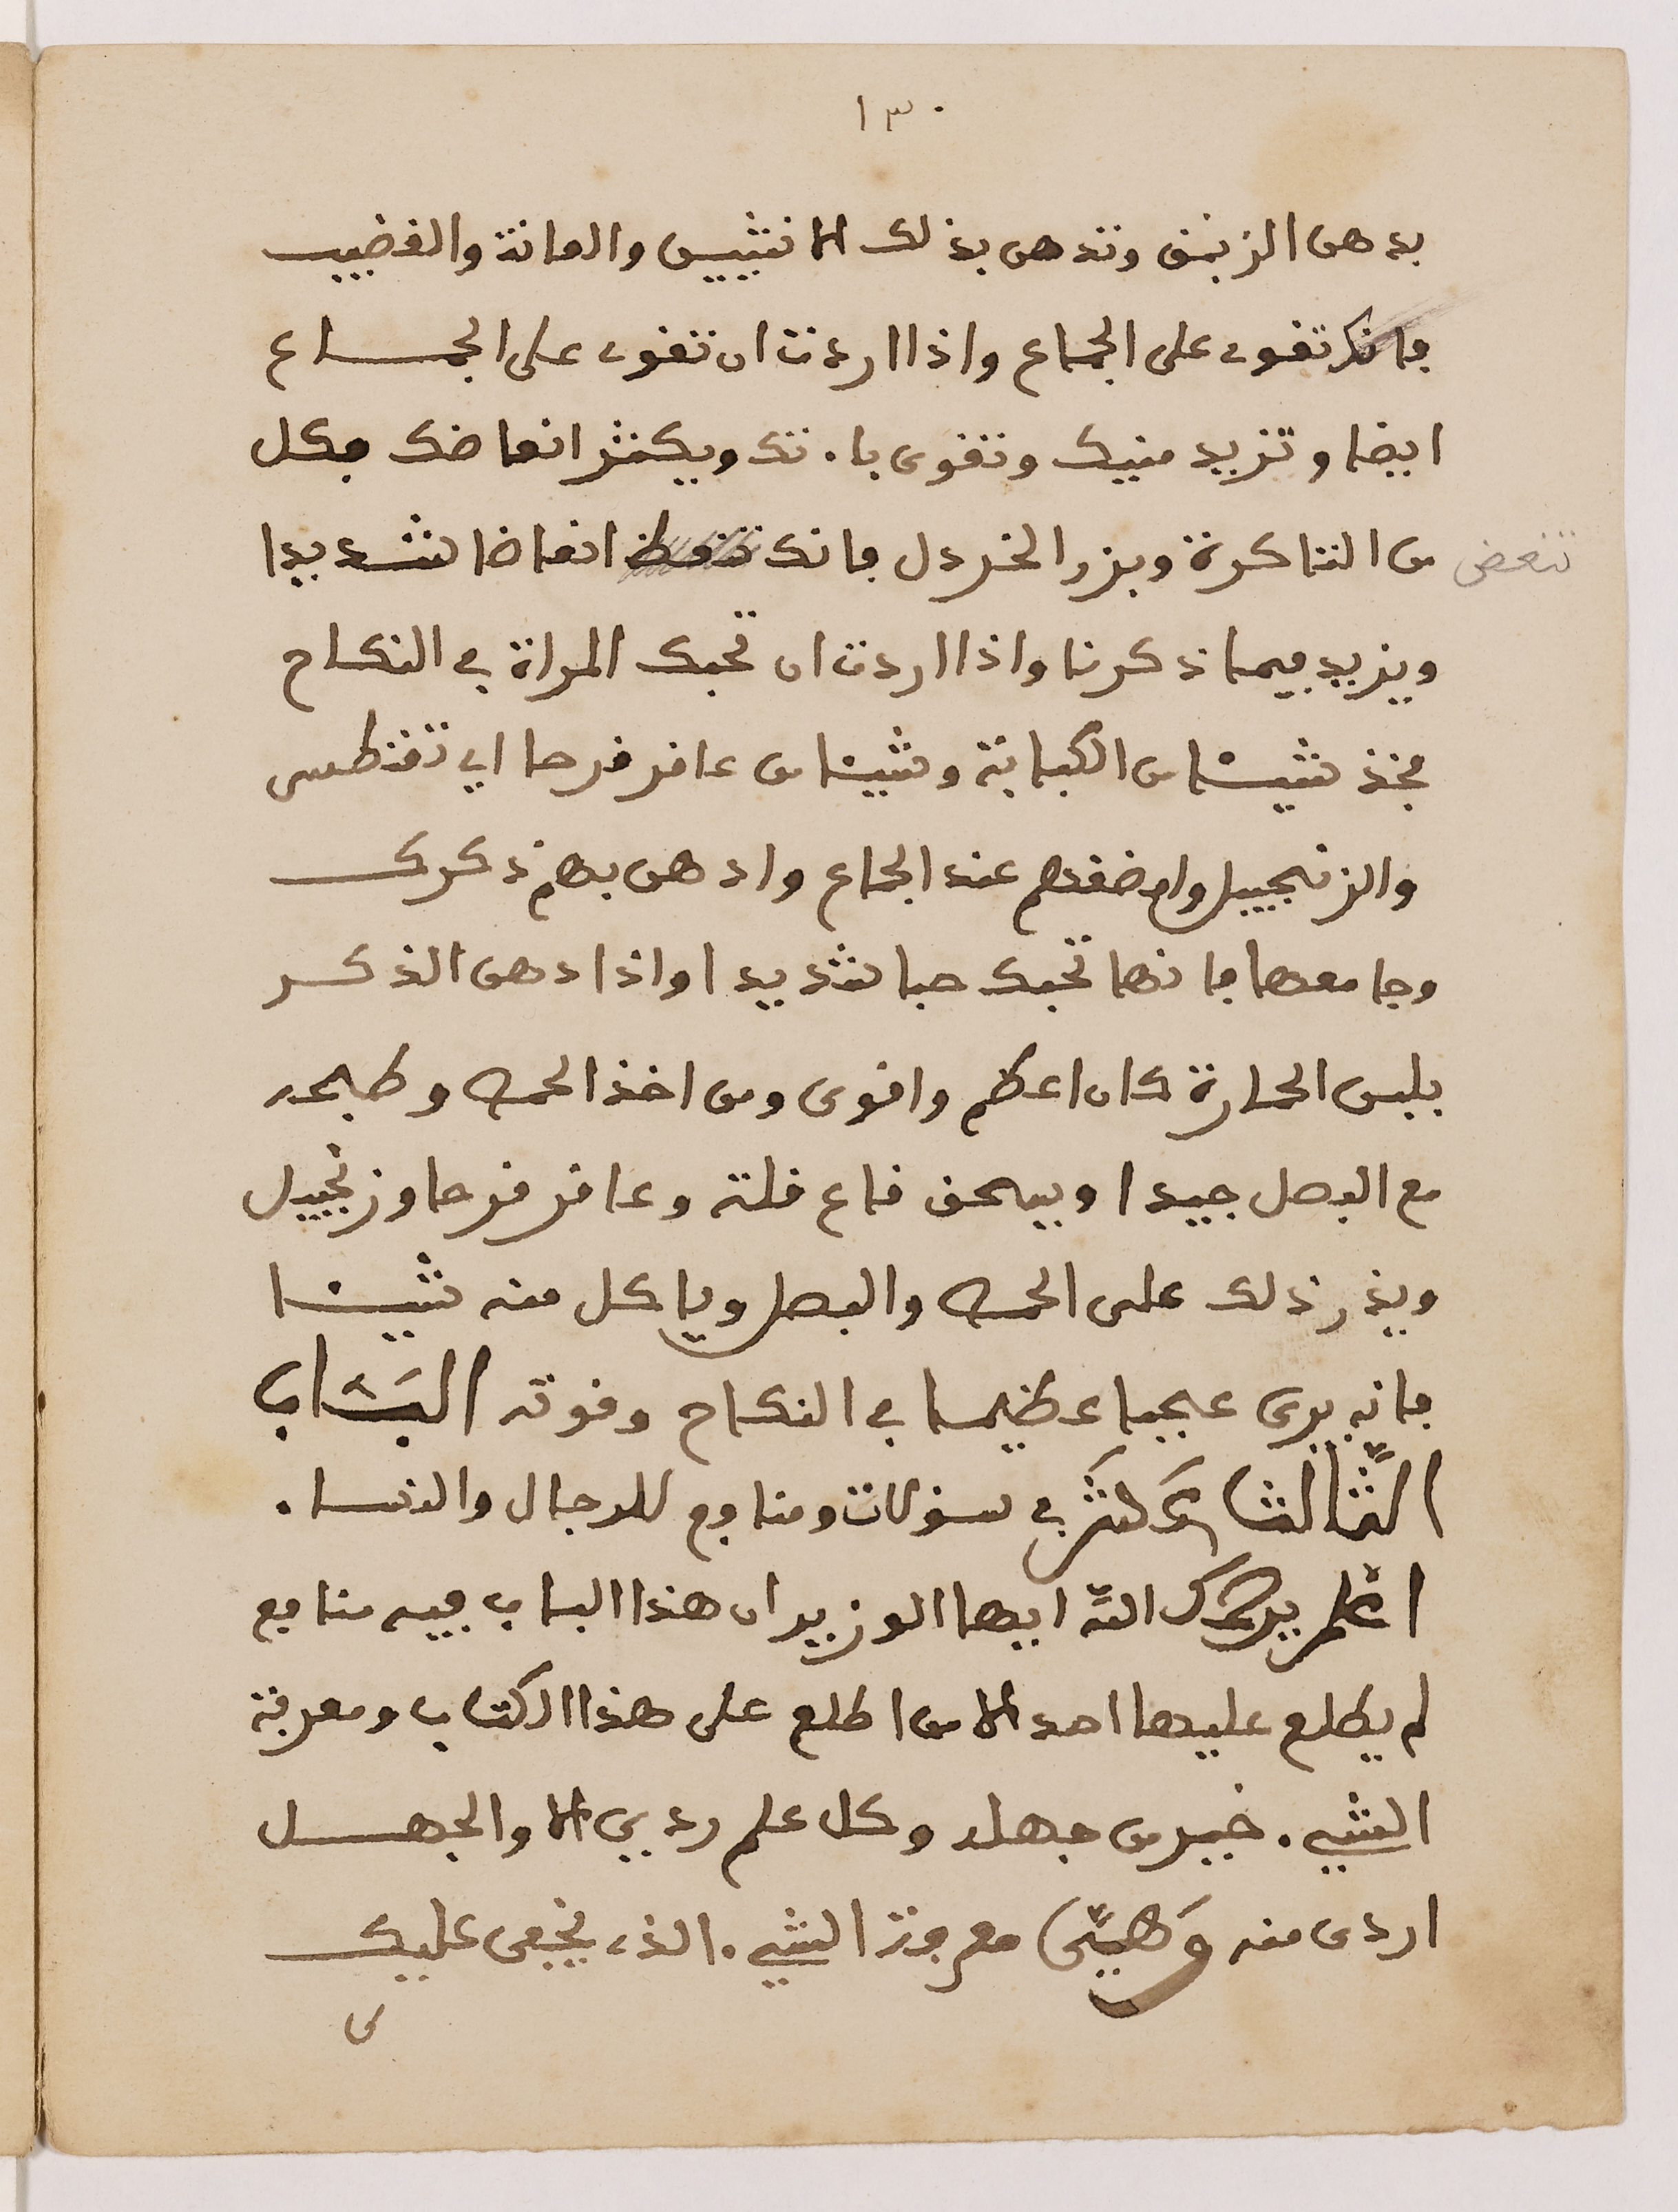 ١٣٠
بدهن الزنبق وتدهن بذلك الانثيين والعانة والقضيب
فانك تقوى على الجماع واذا اردت ان تقوى على الجماع
ايضا وتزيد منيك وتقوى باءتك ويكثر انعاضك فكل
من التاكرة وبزر الخردل فانك انعاضا شديدا
تنعض
ويزيد فيما ذكرنا واذا اردت ان تحبك المراة في النكاح
فخذ شيئا من الكبابة وشيئا من عاقر قرحا اي تقنطس
والزنجبيل وامضغهم عند الجماع وادهن بهم ذكرك
وجامعها فانها تحبك حبا شديدا واذا دهن الذكر
بلبن الحمارة كان اعظم واقوى ومن اخذ الحمص وطبخه
مع البصل جيدا ويسحق قاع قلة وعاقر قرحا وزنجبيل
ويذر ذلك على الحمص والبصل وياكل منه شيئا
فانه يرى عجبا عظيما في النكاح وقوته الباب
الثالث عشر في سؤلات ومنافع للرجال والنساء
اعلم يرحمك الله ايها الوزير ان هذا الباب فيه منافع
لم يطلع عليها احد الا من اطلع على هذا الكتاب ومعرفة
الشيء خير من جهله وكل علم ردي الا والجهل
اردى منه وهي معرفة الشيء الذي يخفى عليك